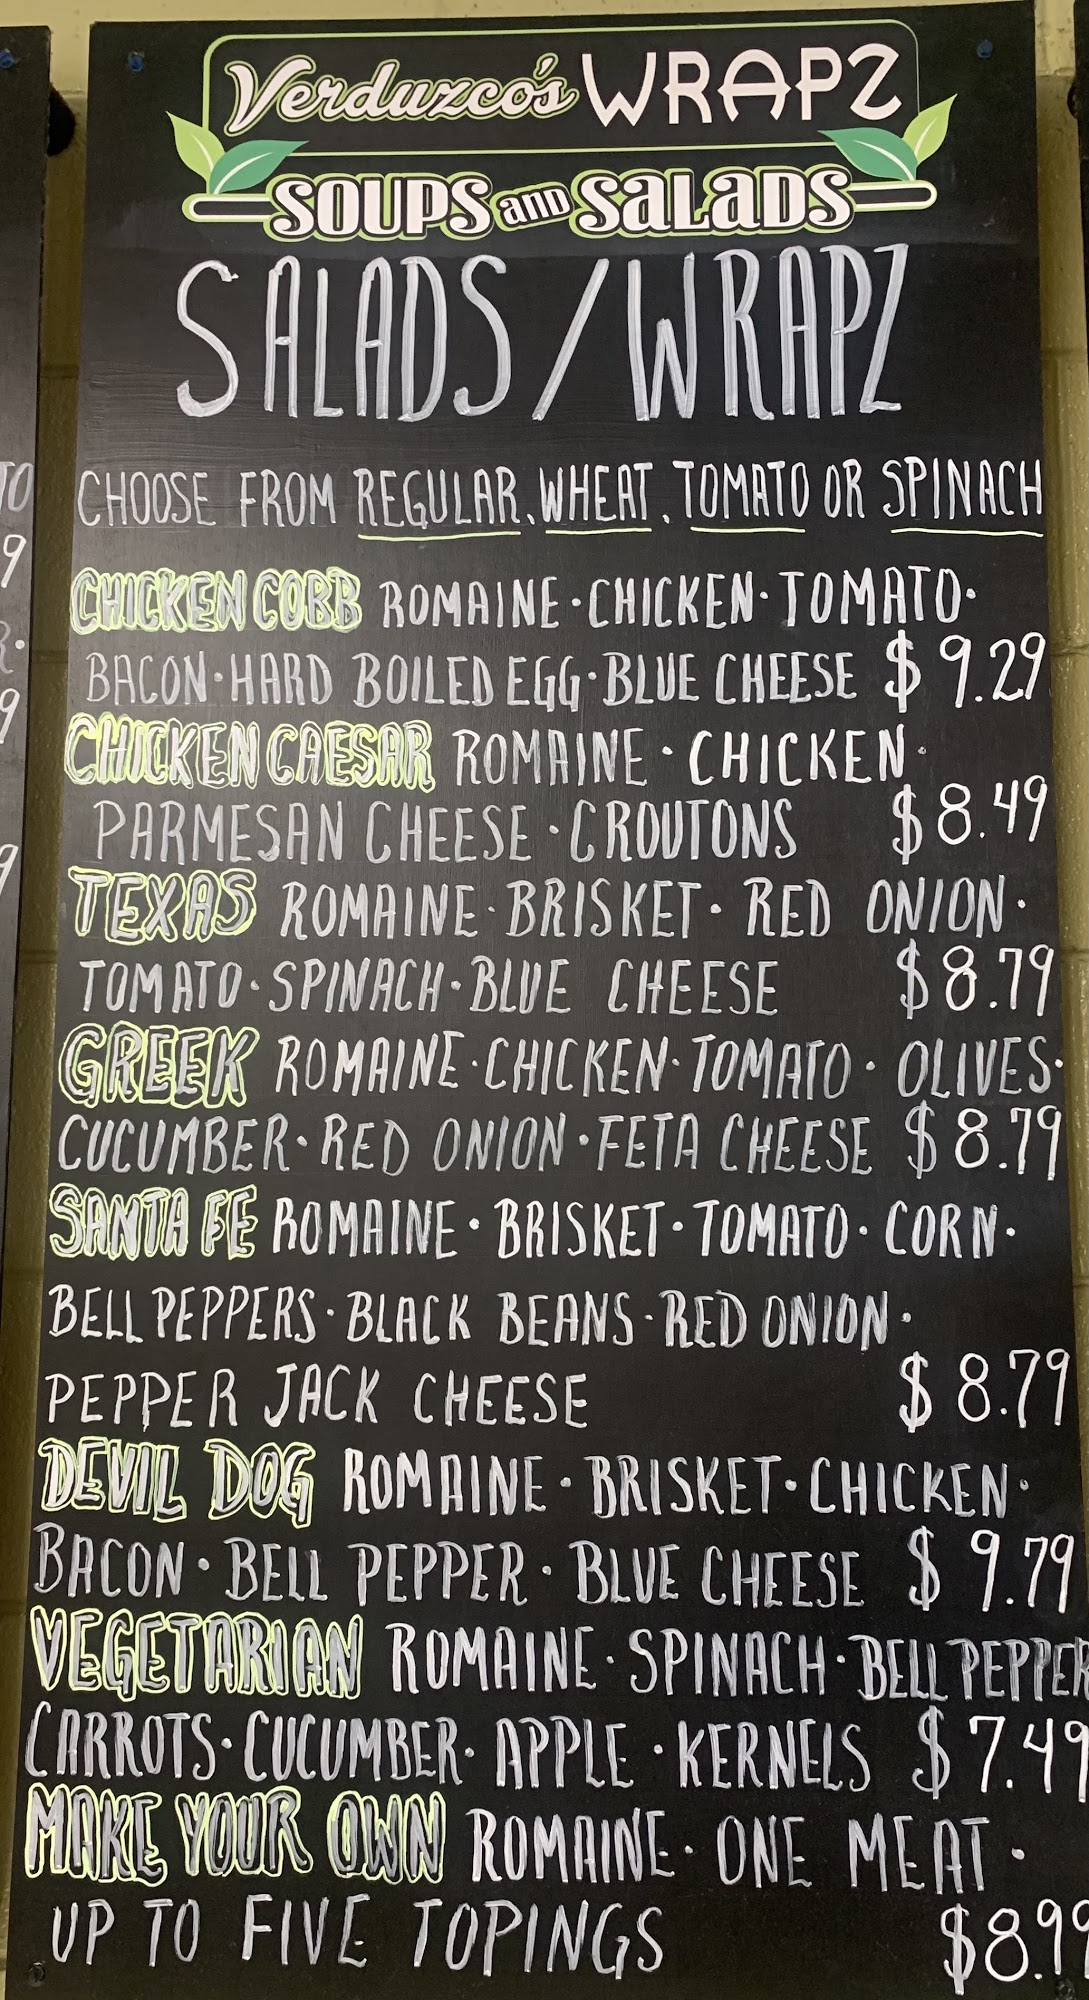 Verduzco's WRAPZ
SOUPS and SALADS
SALADS/WRAPZ
CHOOSE FROM REGULAR, WHEAT, TOMATO OR SPINACH
CHICKEN COBB ROMAINE · CHICKEN · TOMATO ·
BACON · HARD BOILED EGG · BLUE CHEESE $9.29
CHICKEN CAESAR ROMAINE · CHICKEN ·
PARMESAN CHEESE · CROUTONS $8.49
TEXAS ROMAINE · BRISKET · RED ONION ·
TOMATO · SPINACH · BLUE CHEESE $8.79
GREEK ROMAINE · CHICKEN · TOMATO · OLIVES ·
CUCUMBER · RED ONION · FETA CHEESE $8.79
SANTA FE ROMAINE · BRISKET · TOMATO · CORN ·
BELL PEPPERS · BLACK BEANS · RED ONION ·
PEPPER JACK CHEESE $8.79
DEVIL DOG ROMAINE · BRISKET · CHICKEN ·
BACON · BELL PEPPER · BLUE CHEESE $9.79
VEGETARIAN ROMAINE · SPINACH · BELL PEPPER
CARROTS · CUCUMBER · APPLE · KERNELS $7.49
MAKE YOUR OWN ROMAINE · ONE MEAT ·
UP TO FIVE TOPINGS $8.99